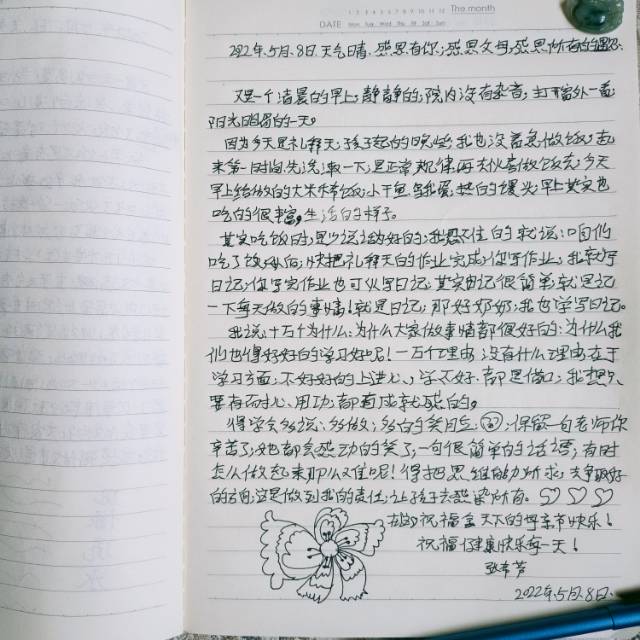 1 2 3 4 5 6 7 8 9 10 11 12 The month
DATE Mon Tue Wed Thu Fri Sat Sun
2022年5月.8日 天气晴、感恩有你;感恩父母,感恩所有的遇见.
又是一个清晨的早上,静静的,院内没有杂音,打开窗外一面
阳光明媚的一天。
因为今天是礼拜天,孩子起的晚些,我也没着急做饭,起
来第一时间先洗漱一下,是正常规律,再大伙喜做饭,今天
早上给做的大米稀饭,小干鱼 热的馍 早上其实也
吃的很丰富,生活的样子。
其实吃饭时,是少说话好的,我忍不住的就说:咱们
吃了饭以后,快把礼拜天的作业完成,你写作业,我就写
日记,你写完作业也可以写日记,其实日记很简单,就是记
一下每天做的事情!就是日记,那好奶奶,我也学写日记。
我说:十万个为什么,为什么大家做事情都很好的,为什么我
们也得好好的学习好呢!一万个理由,没有什么理由,在于
学习方面,不好好的上进心,学不好,都是借口,我想只
要有耐心、用功,都有成就感的。
得学会多说、多做,多的笑脸,保留一句老师你
辛苦了,她都会感动的笑了,一句很简单的话语,有时
怎么做起来那么难呢!得把思维能力所求,去争取好
的方向,这是做到我的责任,让孩子去感染所有。
在此祝福全天下的母亲节快乐!
祝福健康快乐每一天!
2022年5月.8日.